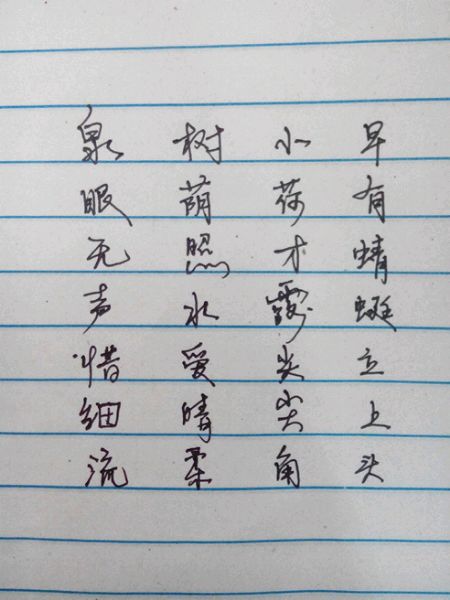 泉眼无声惜细流
树荫照水爱晴柔
小荷才露尖尖角
早有蜻蜓立上头